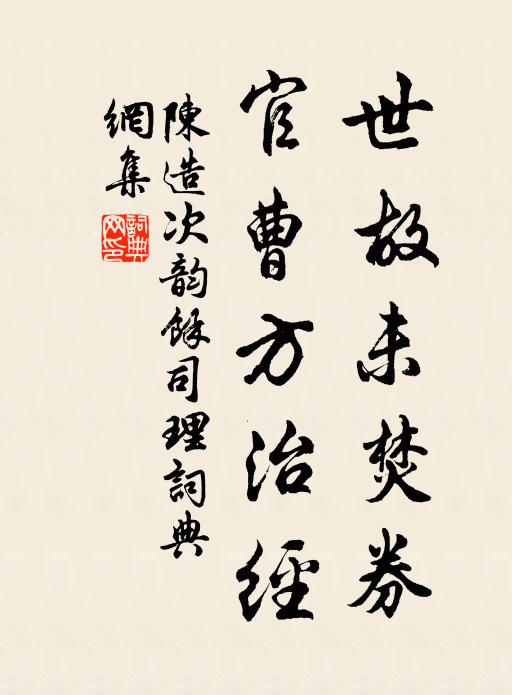 世故未焚券
官曹方治經
陳造次韵餘司理詞典
網集
詞典網印